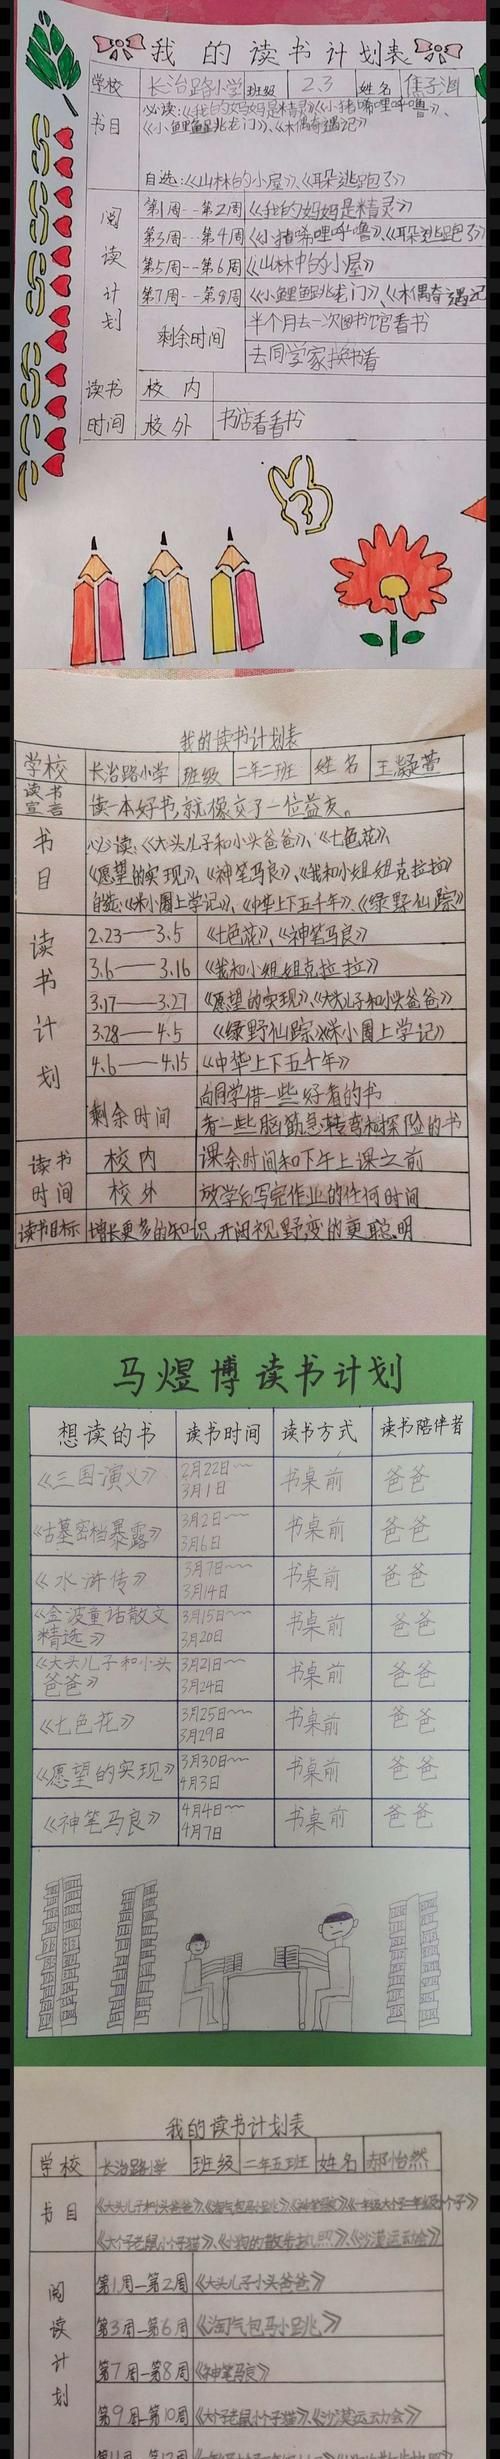 我的读书计划表
学校 长治路小学 班级 2.3 姓名
书目 必读:《我的妈妈是精灵》《小猪唏哩呼噜》、
《小鲤鱼跳龙门》、《木偶奇遇记》
自选:《山林中的小屋》、《耳朵逃跑了》
阅读计划
第1周--第2周 《我的妈妈是精灵》
第3周--第4周 《小猪唏哩呼噜》、《耳朵逃跑了》
第5周--第6周 《山林中的小屋》
第7周--第8周 《小鲤鱼跳龙门》、《木偶奇遇记
剩余时间 半个月去一次图书馆看书
去同学家换书看
读书时间 校内
校外 书店看看书
我的读书计划表
学校 长治路小学 班级 二年二班 姓名 王凝萱
读书宣言 读一本好书,就像交了一位益友。
书目 必读:《大头儿子和小头爸爸》、《七色花》、
《愿望的实现》、《神笔马良》、《我和小姐姐克拉拉》
自选:《米小圈上学记》、《中华上下五千年》、《绿野仙踪》
读书计划
2.23——3.5 《七色花》、《神笔马良》
3.6——3.16 《我和小姐姐克拉拉》
3.17——3.27 《愿望的实现》、《大头儿子和小头爸爸》
3.28——4.5 《绿野仙踪》《米小圈上学记》
4.6——4.15 《中华上下五千年》
剩余时间 向同学借一些好看的书
看一些脑筋急转弯和探险的书
读书时间 校内 课余时间和下午上课之前
校外 放学后写完作业的任何时间
读书目标 增长更多的知识,开阔视野变的更聪明
马煜博读书计划
想读的书 读书时间 读书方式 读书陪伴者
《三国演义》 2月22日~3月1日 书桌前 爸爸
《古墓密档暴露》 3月2日~3月6日 书桌前 爸爸
《水浒传》 3月7日~3月14日 书桌前 爸爸
《金波童话散文精选》 3月15日~3月20日 书桌前 爸爸
《大头儿子和小头爸爸》 3月21日~3月24日 书桌前 爸爸
《七色花》 3月25日~3月29日 书桌前 爸爸
《愿望的实现》 3月30日~4月3日 书桌前 爸爸
《神笔马良》 4月4日~4月7日 书桌前 爸爸
我的读书计划表
学校 长治路小学 班级 二年五班 姓名 郝怡然
书目 《大头儿子和小头爸爸》、《淘气包马小跳》、《神笔马良》、《一年级大个子二年级小个子》
《大个子老鼠小个子猫》、《小狗的》、《沙漠运动会》
阅读计划
第1周—第2周 《大头儿子小头爸爸》
第3周—第6周 《淘气包马小跳》
第7周—第8周 《神笔马良》
第9周—第10周 《大个子老鼠小个子猫》、《沙漠运动会》